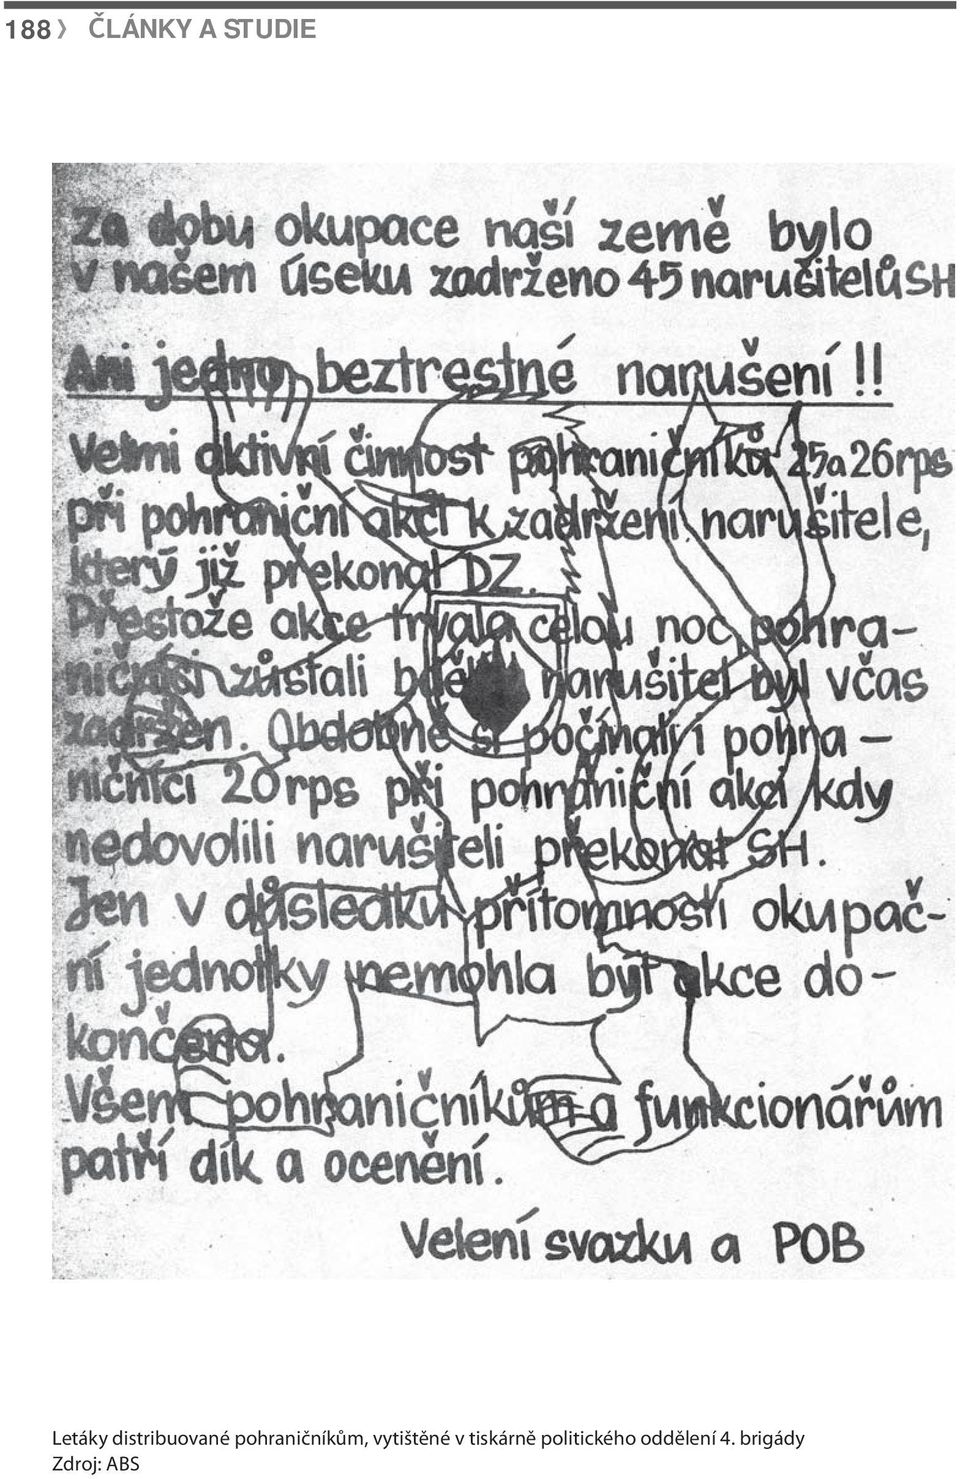 188 › ČLÁNKY A STUDIE
Za dobu okupace naší země bylo
v našem úseku zadrženo 45 narušitelů SH
Ani jedno beztrestné narušení!!
Velmi aktivní činnost pohraničníků 25a26rps
při pohraniční akci k zadržení narušitele,
který již překonal DZ.
Přestože akce trvala celou noc pohra-
ničníci zůstali bdělí narušitel byl včas
zadržen. Obdobně si počínali i pohra-
ničníci 20rps při pohraniční akci kdy
nedovolili narušiteli překonat SH.
Jen v důsledku přítomnosti okupač-
ní jednotky nemohla být akce do-
končena.
Všem pohraničníkům a funkcionářům
patří dík a ocenění.
Velení svazku a POB
Letáky distribuované pohraničníkům, vytištěné v tiskárně politického oddělení 4. brigády
Zdroj: ABS